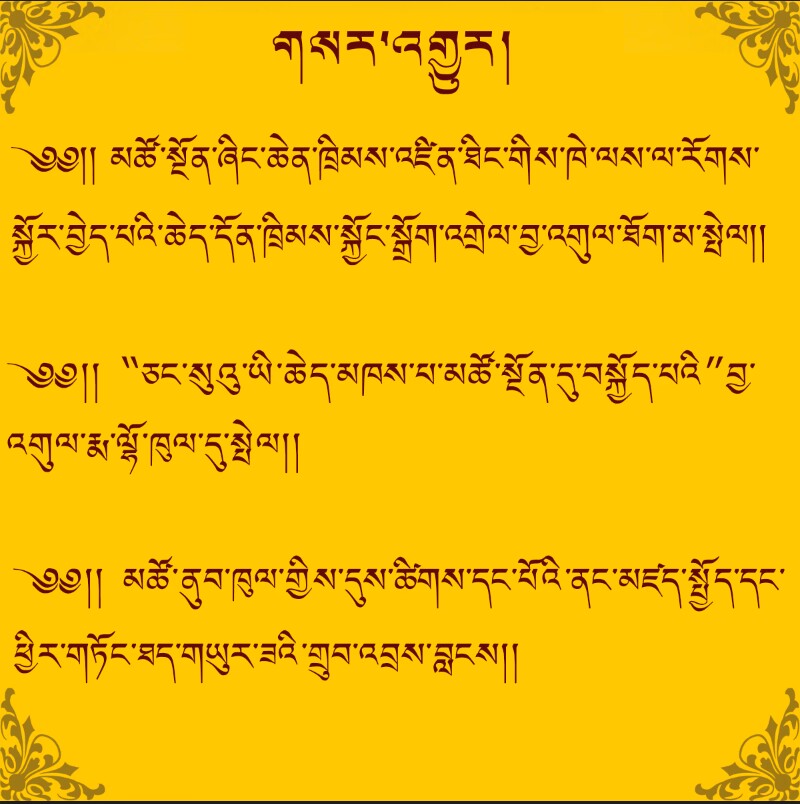 གསར་འགྱུར།
༄༅།། མཚོ་སྔོན་ཞིང་ཆེན་ཁྲིམས་འཛིན་ཐིང་གིས་ཁེ་ལས་ལ་རོགས་
སྐྱོར་བྱེད་པའི་ཆེད་དོན་ཁྲིམས་སྐྱོང་སྒྲོག་འགྲེལ་བྱ་འགུལ་ཐོག་མ་སྤེལ།།
༄༅།། “ཅང་སུའུ་ཡི་ཆེད་མཁས་པ་མཚོ་སྔོན་དུ་བསྐྱོད་པའི”བྱ་
འགུལ་རྨ་ལྷོ་ཁུལ་དུ་སྤེལ།།
༄༅།། མཚོ་ནུབ་ཁུལ་གྱིས་དུས་ཚིགས་དང་པོའི་ནང་མཛད་སྤྱོད་དང་
ཕྱིར་གཏོང་ཐད་གཡུར་ཟའི་གྲུབ་འབྲས་བླངས།།